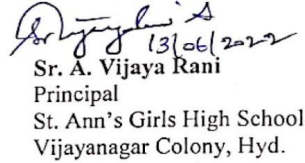 13/06/2022
Sr. A. Vijaya Rani
Principal
St. Ann's Girls High School
Vijayanagar Colony, Hyd.